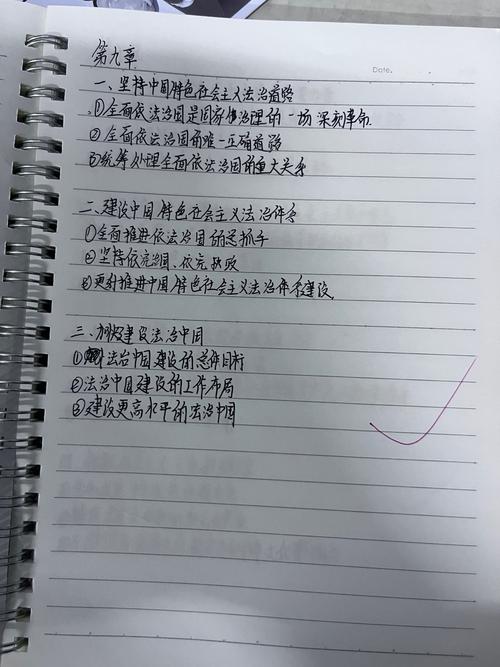 第九章
Date.
一、坚持中国特色社会主义法治道路
①全面依法治国是国家治理的一场深刻革命
②全面依法治国的唯一正确道路
③统筹处理全面依法治国的重大关系
二、建设中国特色社会主义法治体系
①全面推进依法治国的总抓手
②坚持依宪治国、依宪执政
③更好推进中国特色社会主义法治体系建设
三、加快建设法治中国
①法治中国建设的总体目标
②法治中国建设的工作布局
③建设更高水平的法治中国